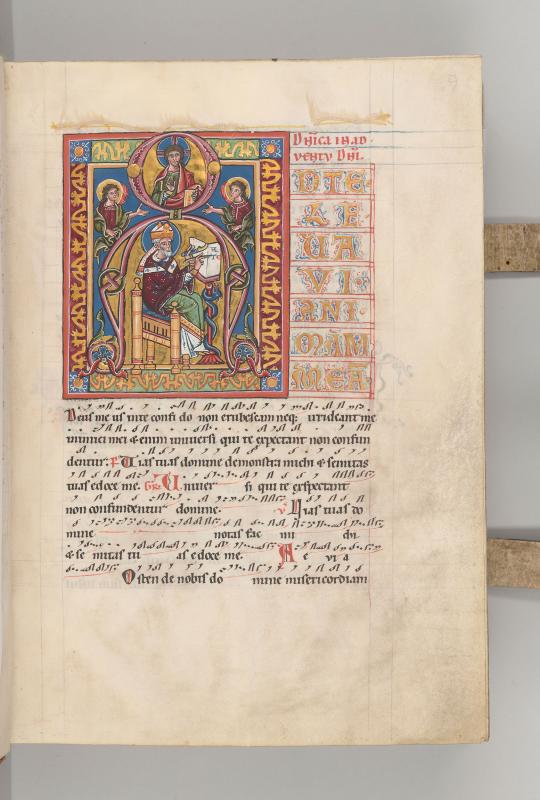 Dnica in ad
ventu Dni.
D TE
LE
UA
VI
ANI
MĀM
MEA
Deus me us in te confi do non erubescam neq; irrideant me
inimici mei & enim universi qui te expectant non confun
dentur. Vias tuas domine demonstra michi & semitas
tuas edoce me. U niver si qui te exspectant
non confundentur domine. V ias tuas do
mine notas fac mi chi
& se mitas tu as edoce me. A e vi a
Osten de nobis do mine misericordiam